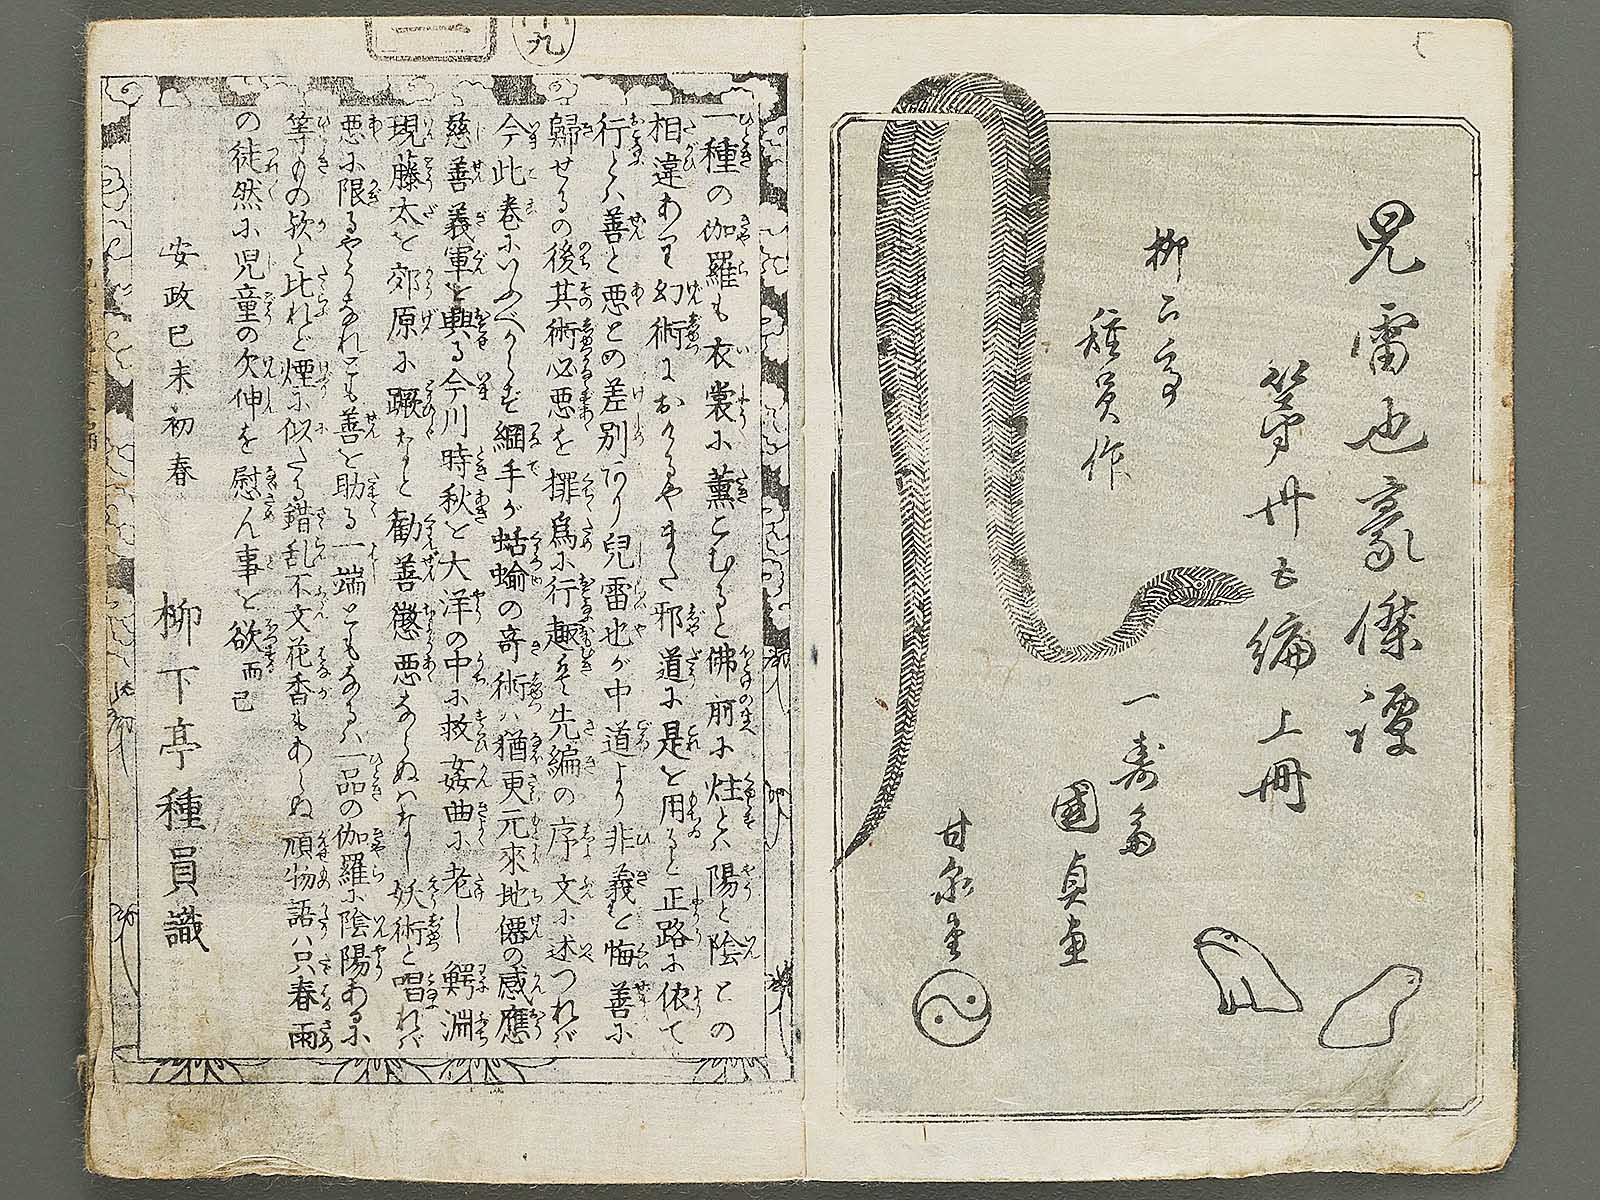 児雷也豪傑譚
第卅七編上冊
柳下亭
種員作
一壽斎
國貞画
甘泉堂
一種の伽羅も衣裳に薫こむると佛前に炷とハ陽と陰との
相違あり幻術におけるやまた邪道に是を用ると正路に依て
行とハ善と悪との差別あり兒雷也が中道より非義を悔善に
歸せるの後其術必悪を擢爲に行趣を先編の序文に述つれバ
今此巻にいふべからず綱手が蛞蝓の奇術ハ猶更元來地僊の感應
慈善義軍を興る今川時秋を大洋の中に救姦曲に老し鰐淵
現藤太を郊原に蹶なと勸善懲悪ならぬハなし妖術と唱れバ
悪に限るやうなれども善を助る一端ともなるハ一品の伽羅に陰陽あるに
等きもの歟と比れど煙に似たる錯乱不文花香もあらぬ頑物語ハ只春雨
の徒然に児童の欠伸を慰ん事を欲而已
安政己未初春
柳下亭種員識
十九